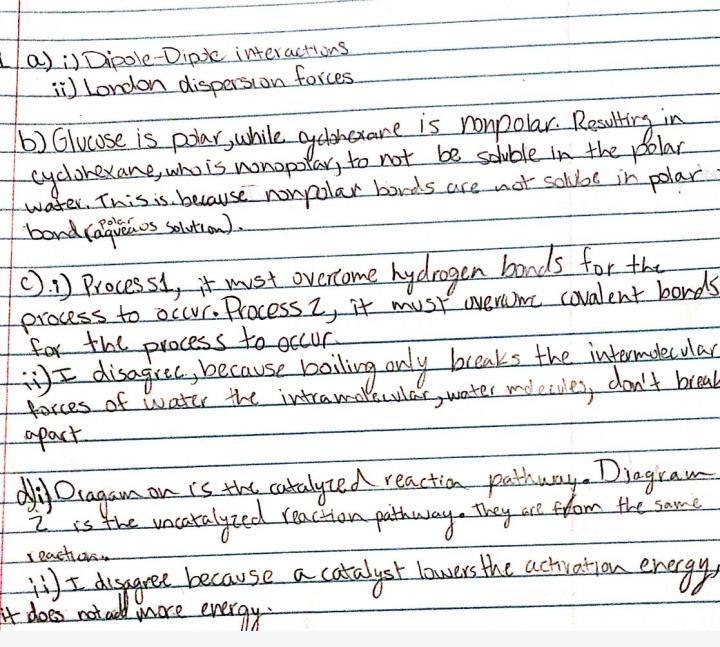 1 a) i) Dipole-Dipole interactions
ii) London dispersion forces
b) Glucose is polar, while cyclohexane is nonpolar. Resulting in
cyclohexane, who is nonopolar, to not be soluble in the polar
water. This is because nonpolar bonds are not soluble in polar
bond (polar aqueous solution).
c). i) Process 1, it must overcome hydrogen bonds for the
process to occur. Process 2, it must overcome covalent bonds
for the process to occur.
ii) I disagree, because boiling only breaks the intermolecular
forces of water the intramolecular, water molecules, don't break
apart.
d) i) Diagam on is the catalyzed reaction pathway. Diagram
2 is the uncatalyzed reaction pathway. They are from the same
reaction.
ii) I disagree because a catalyst lowers the activation energy,
it does not add more energy.